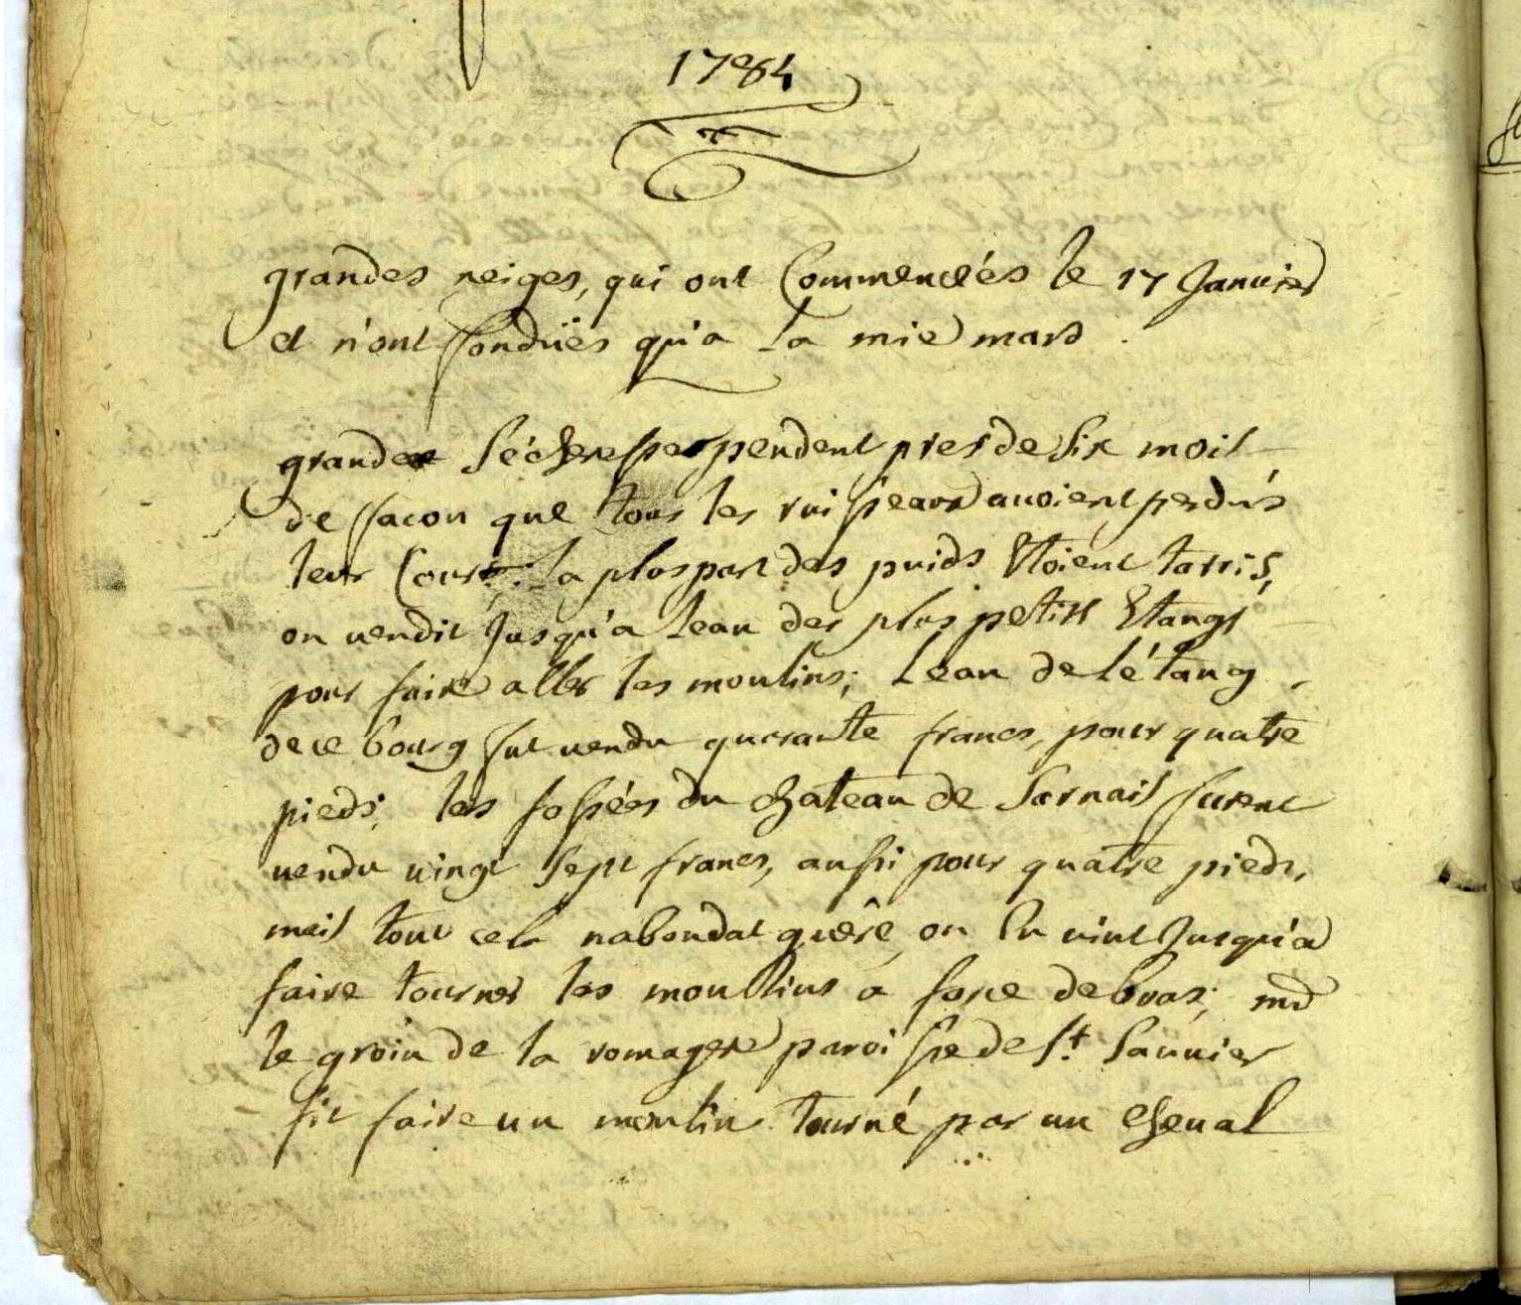 1784
grandes neiges, qui ont Commencées le 17 Janvier
et n'ont fondües qu'a la mie mars.
grande Sécheresse pendent pres de Six mois
de facon que tous les ruisseaux avoient perdus
leur Cours. La pluspart des puids Etoient tarris,
on vendit Jusqu'a Leau des plus petits Etangs
pour faire aller les moulins; Leau de Létang
de ce bourg fut vendu quarante francs, pour quatre
pieds; les fossées du chateau de Sarnais furent
vendu vingt Sept francs, aussi pour quatre pieds,
mais tout cela nabondat guère, on En vint Jusqu'a
faire tourner les moullins a force de bras; md
le groin de la romagere paroisse de St. Sauvier
fit faire un moulin tourné par un cheval